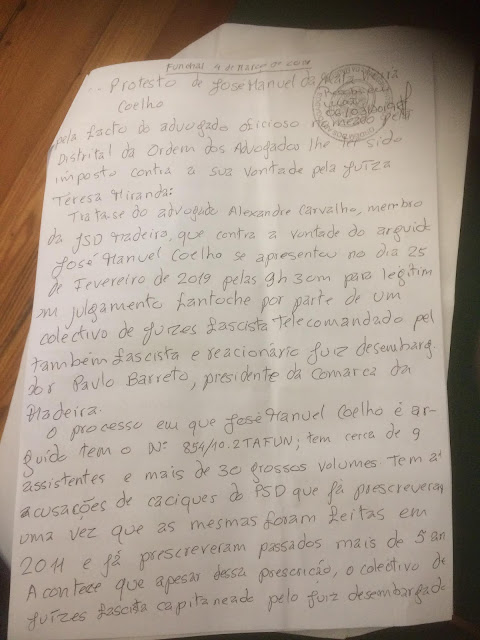 Funchal 4 de Março de 2019
Protesto de José Manuel da Mata Vieira
Coelho
pela facto do advogado oficioso nomeado pela
Distrital da Ordem dos Advogados lhe ter sido
imposto contra a sua vontade pela juíza
Teresa Miranda:
Trata-se do advogado Alexandre Carvalho, membro
da JSD Madeira, que contra a vontade do arguido
José Manuel Coelho se apresentou no dia 25
de Fevereiro de 2019 pelas 9h 30m para legitim
um julgamento fantoche por parte de um
colectivo de juízes fascista telecomandado pel
também fascista e reacionário juiz desembarg
dor Paulo Barreto, presidente da Comarca da
Madeira.
O processo em que José Manuel Coelho é ar-
guido tem o Nº 854/10.2TAFUN; tem cerca de 9
assistentes e mais de 30 grossos volumes tem a
acusações de caciques do PSD que já prescreveram
uma vez que as mesmas foram feitas em
2011 e já prescreveram passados mais de 5 an
Acontece que apesar dessa prescrição, o colectivo de
juízes fascista capitaneado pelo juiz desembargad